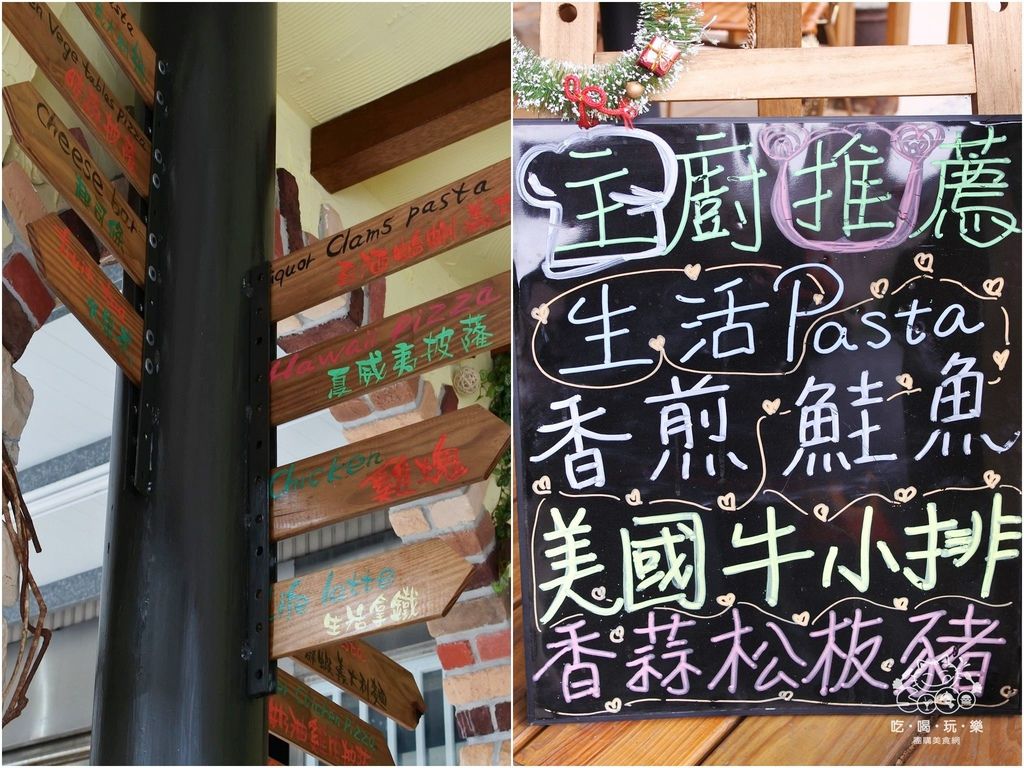 Vege tables pizza
Cheese bar
Clams pasta
Hawaii pizza
夏威夷披薩
Chicken
雞塊
life latte
生活拿鐵
主廚推薦
生活Pasta
香煎鮭魚
美國牛小排
香蒜松板豬
吃·喝·玩·樂
團購美食網